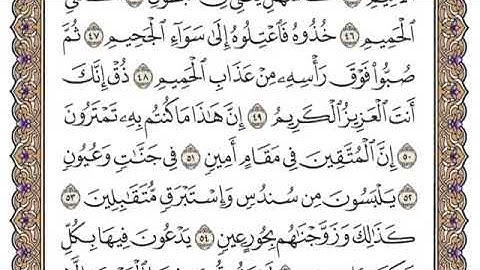 ٱلۡحَمِيمِ ٤٦ خُذُوهُ فَٱعۡتِلُوهُ إِلَىٰ سَوَآءِ ٱلۡجَحِيمِ ٤٧ ثُمَّ
صُبُّواْ فَوۡقَ رَأۡسِهِۦ مِنۡ عَذَابِ ٱلۡحَمِيمِ ٤٨ ذُقۡ إِنَّكَ
أَنتَ ٱلۡعَزِيزُ ٱلۡكَرِيمُ ٤٩ إِنَّ هَٰذَا مَا كُنتُم بِهِۦ تَمۡتَرُونَ
٥٠ إِنَّ ٱلۡمُتَّقِينَ فِي مَقَامٍ أَمِينٖ ٥١ فِي جَنَّٰتٖ وَعُيُونٖ
٥٢ يَلۡبَسُونَ مِن سُندُسٖ وَإِسۡتَبۡرَقٖ مُّتَقَٰبِلِينَ ٥٣
كَذَٰلِكَ وَزَوَّجۡنَٰهُم بِحُورٍ عِينٖ ٥٤ يَدۡعُونَ فِيهَا بِكُلِّ